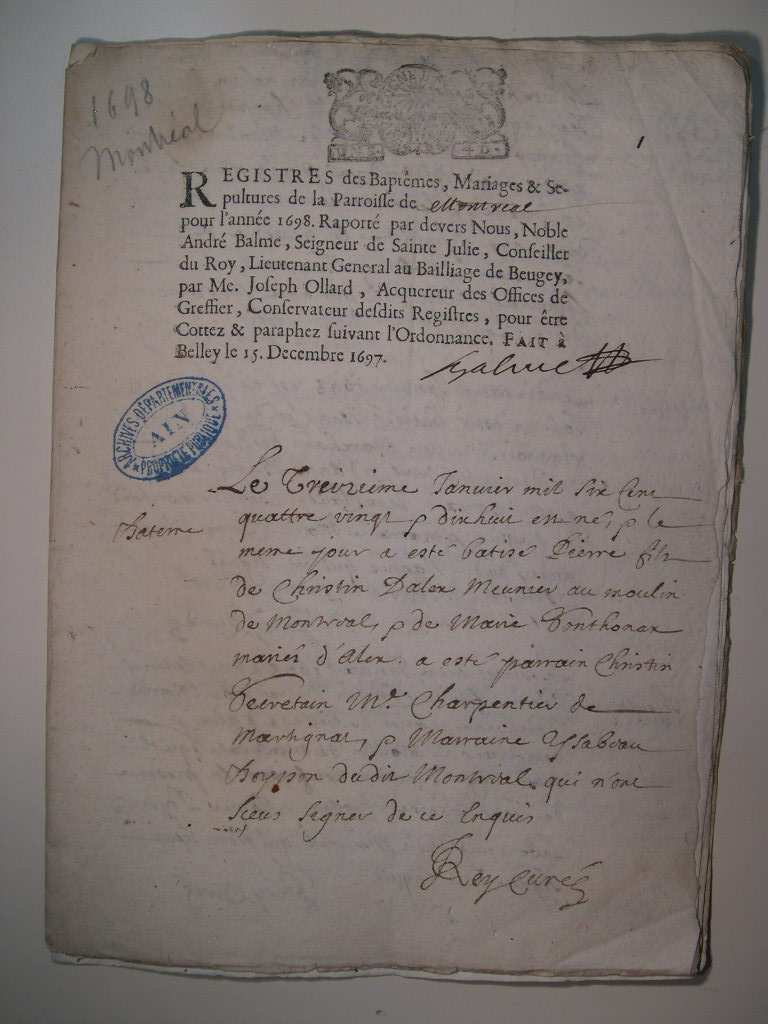 1698
Montréal
1
REGISTRES des Baptêmes, Mariages & Se-
pultures de la Parroisse de Montreal
pour l'année 1698. Raporté par devers Nous, Noble
André Balme, Seigneur de Sainte Julie, Conseiller
du Roy, Lieutenant General au Bailliage de Beugey,
par Me. Joseph Ollard, Acquereur des Offices de
Greffier, Conservateur desdits Registres, pour être
Cottez & paraphez suivant l'Ordonnance. FAIT à
Belley le 15. Decembre 1697.
Balme
ARCHIVES DÉPARTEMENTALES
AIN
PROPRIÉTÉ PUBLIQUE
Le Treizieme Januier mil six Cent
quattre vingt & dixhuit est né, & le
meme jour a esté batisé Pierre fils
de Christin Dalex Meunier au moulin
de Montreal, & de Marie
mariés d'Alex. a esté parrain Christin
Secretain Me. Charpentier de
Martignat, & Marraine Ysabeau
dudit Montreal qui n'ont
sceus signer de ce Enquis
Rey Curé